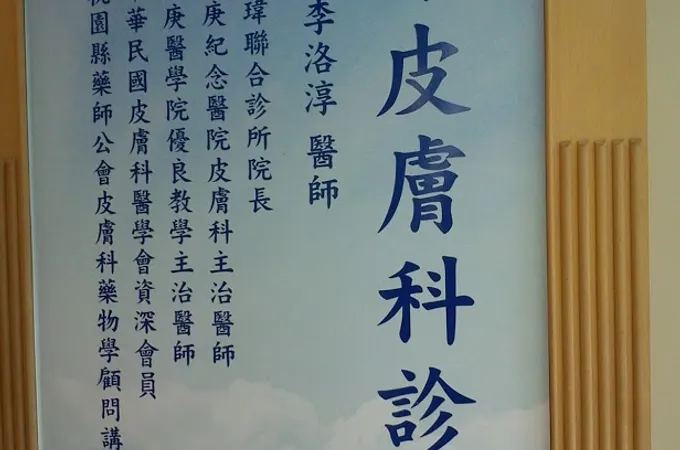 皮膚科診
李洛淳 醫師
瑋聯合診所院長
庚紀念醫院皮膚科主治醫師
庚醫學院優良教學主治醫師
華民國皮膚科醫學會資深會員
桃園縣藥師公會皮膚科藥物學顧問講